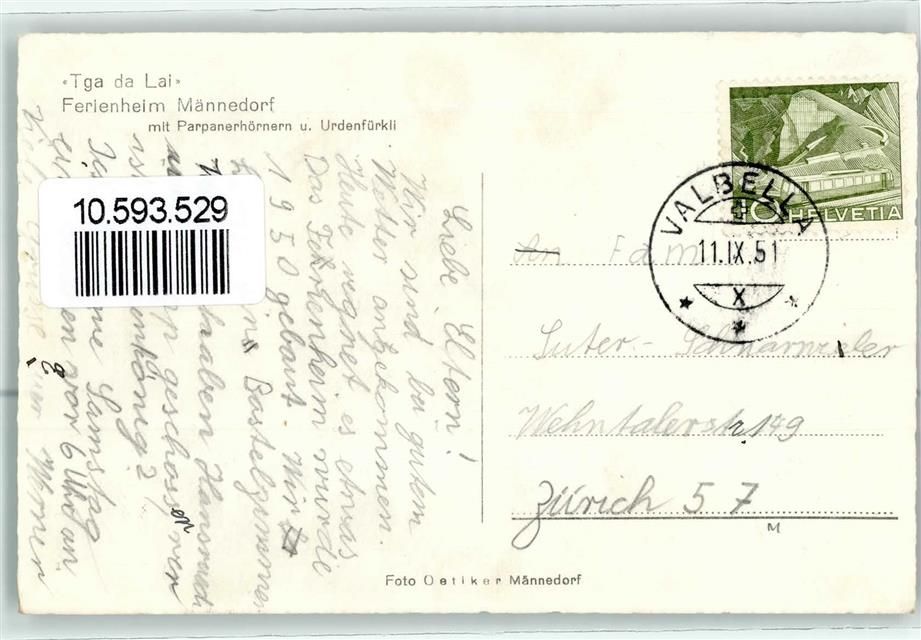 «Tga da Lai»
Ferienheim Männedorf
mit Parpanerhörnern u. Urdenfürkli
10.593.529
Liebe Eltern!
Wir sind bei guten
Wetter angekommen.
Heute regnet es etwas
Das Ferienheim wurde
1950 gebaut. Wir
Bastelzimmer
haben
geschossen wer
ist könig?
kome Samstag
vor 6 Uhr an
HELVETIA
VALBELLA
11.IX.51
X
An Fam
Suter.-
Wehntalerstr 149
Zürich 57
M
Foto Oetiker Männedorf